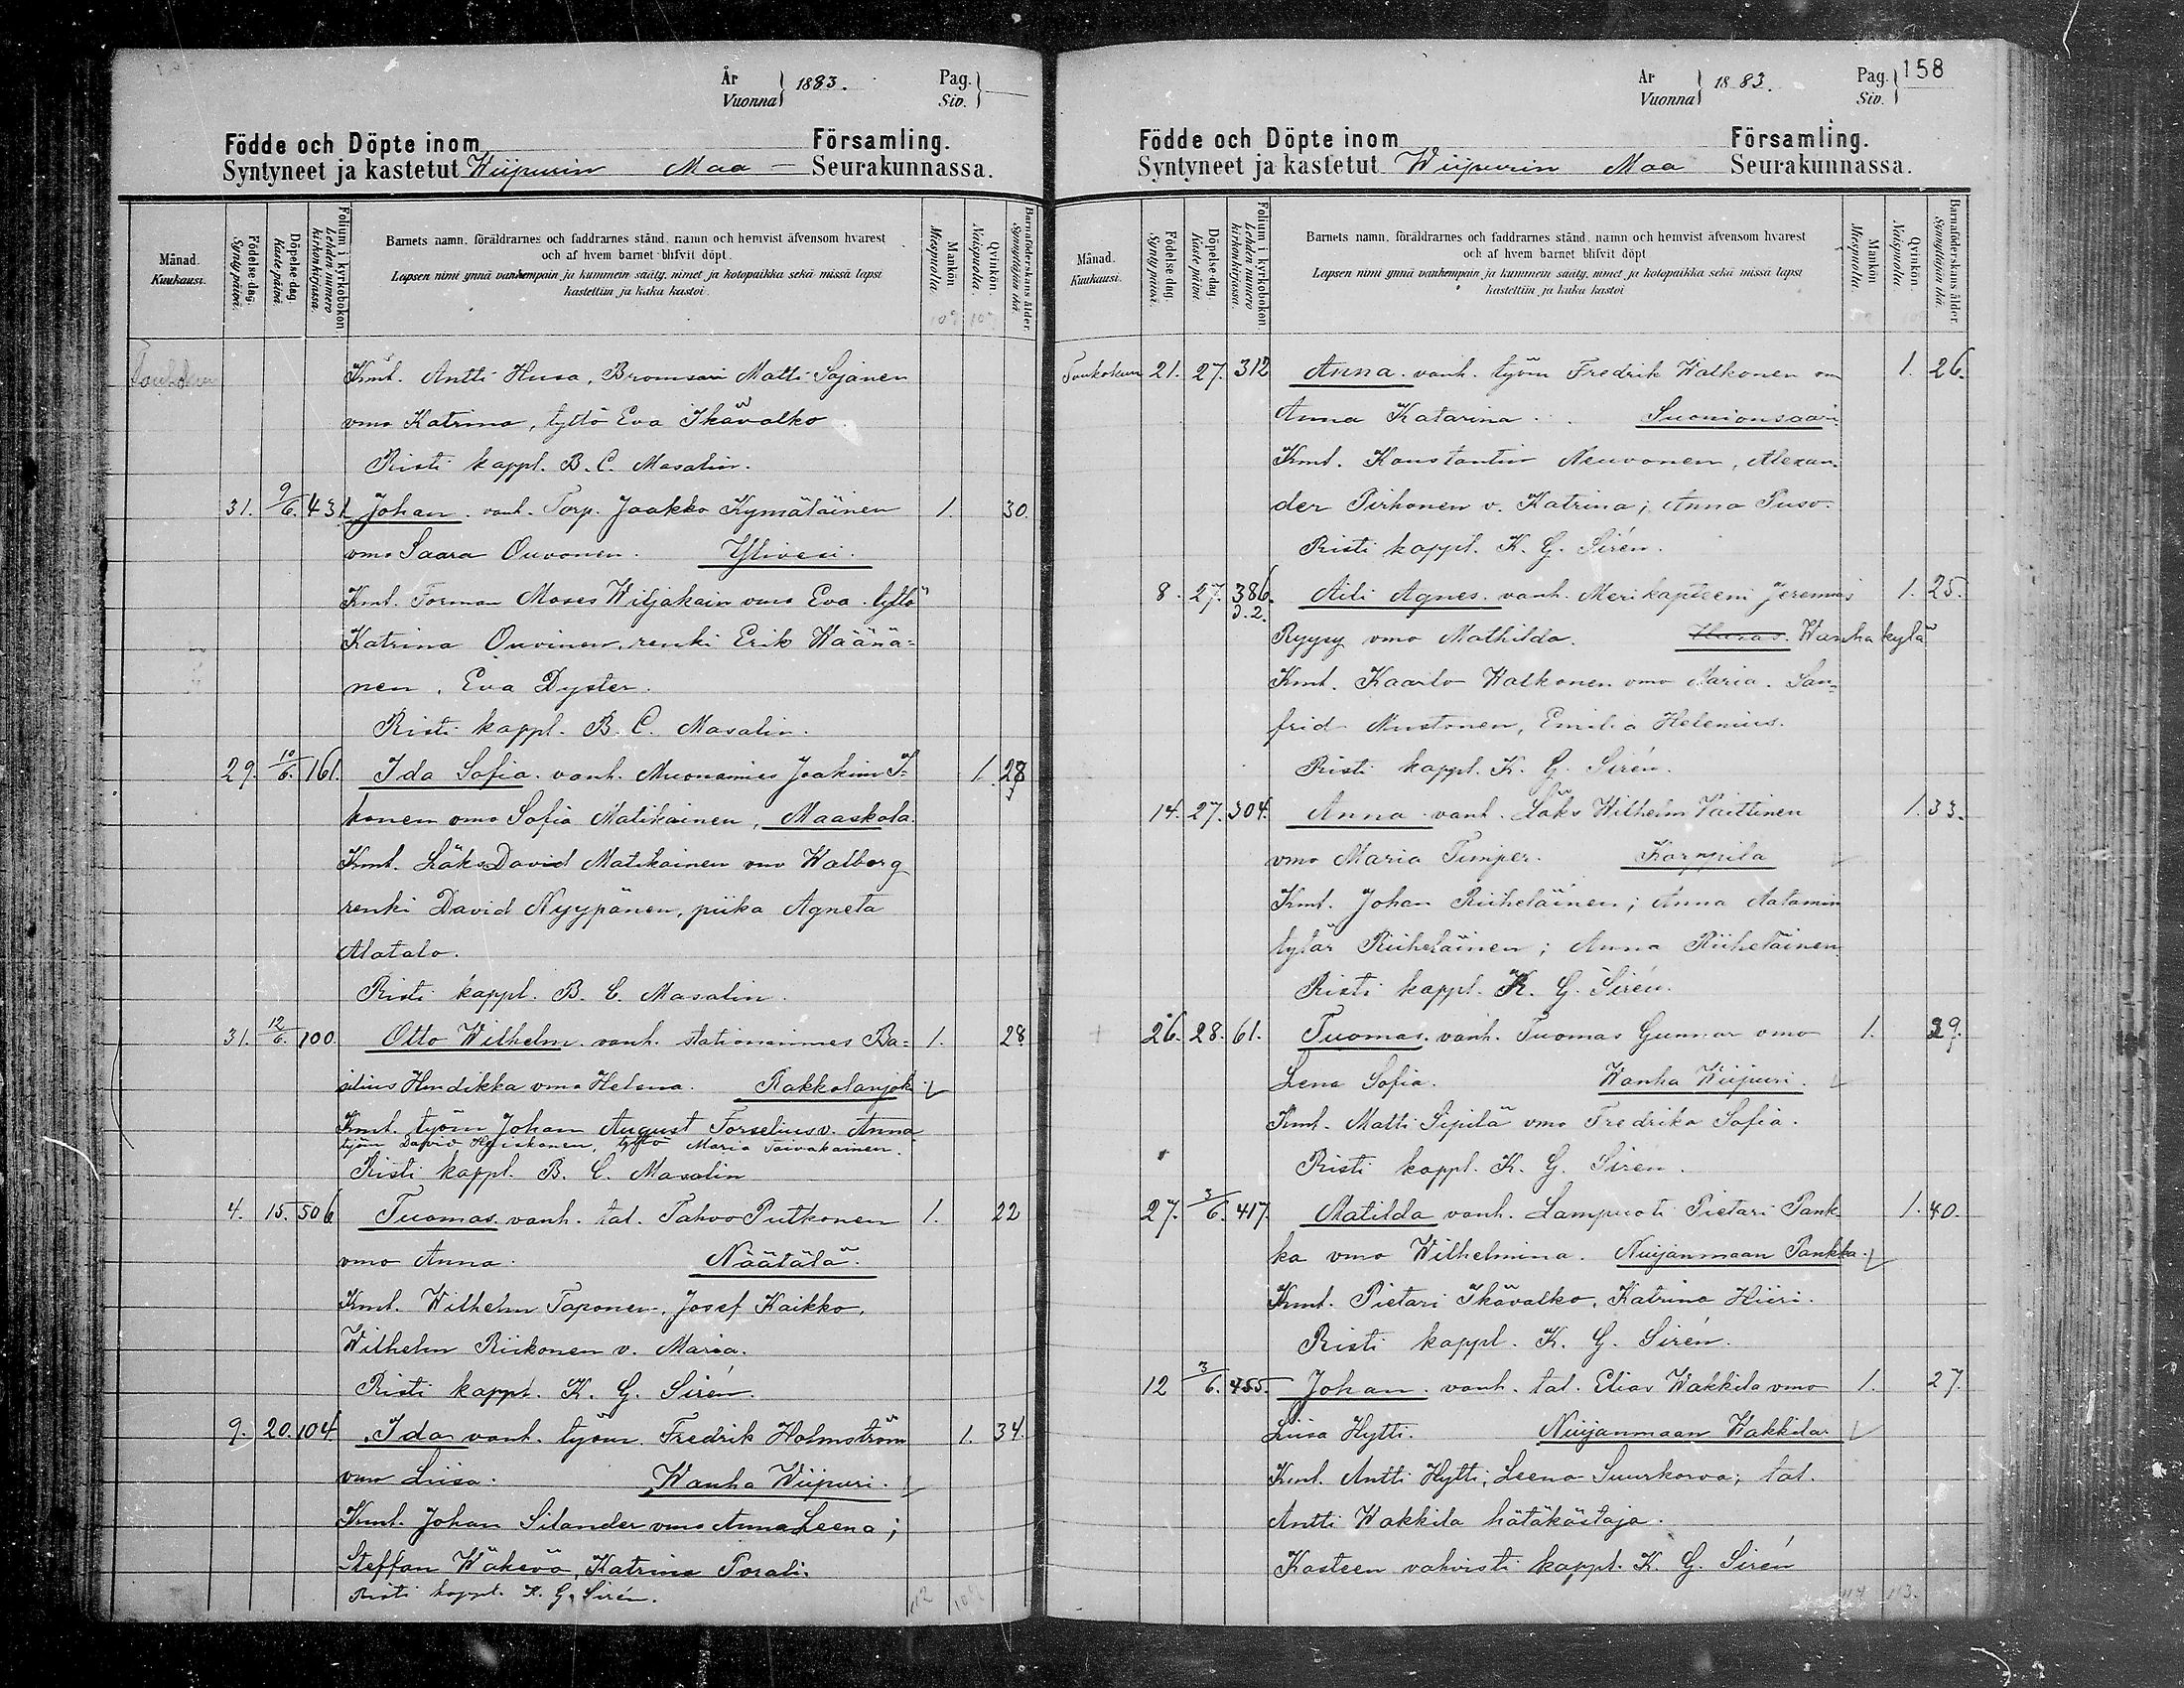 År
Vuonna } 1883.
Pag.
Siv. }
Födde och Döpte inom Församling.
Syntyneet ja kastetut Wiipurin Maa Seurakunnassa.
Månad.
Kuukausi.
Födelse dag.
Synty päivä.
Döpelse dag
Kaste päivä.
Folium i kyrkoboken
Lehden numero
kirkonkirjassa.
Barnets namn, föräldrarnes och faddrarnes stånd, namn och hemvist äfvensom hvarest
och af hvem barnet blifvit döpt.
Lapsen nimi ynnä vanhempain ja kummein sääty, nimet ja kotopaikka sekä missä lapsi
kastettiin ja kuka kastoi.
Mankön
Miespuolia.
Qvinkön.
Naispuolia.
Barnaföderskans ålder.
Synnyttäjän ikä.
Toukokuu
Kmt. Antti Husa, Matti Sojanen
vmo Katrina, tyttö Eva Ikävalko
Risti kappl. B. C. Masalin.
31. 9/6. 431 Johan. vanh. Torp. Jaakko Kymäläinen 1. 30.
vmo Saara Ouvonen. Ylivesi.
Kmt. Forman Moses Wiljakain vmo Eva. tyttö
Katrina Ouvinen, renki Erik Wäänä=
nen, Eva Dyster.
Risti kappl. B. C. Masalin.
29. 10/6. 161. Ida Sofia. vanh. Muonamies Joakim I= 1. 28
honen vmo Sofia Matikainen, Maaskola.
Kmt. Läks David Matikainen vmo Walborg
renki David Nyypänen, piika Agneta
Alatalo.
Risti kappl. B. C. Masalin.
31. 12/6. 100. Otto Wilhelm. vanh. stationimies Ba= 1. 28
silius Hindikka vmo Helena. Rakkolanjok
Kmt. työm Johan August Forselius v. Anna
työm David Hyiskonen, tyttö Maria Toivakainen.
Risti kappl. B. C. Masalin
4. 15. 506 Tuomas. vanh. tal. Tahvo Putkonen 1. 22
vmo Anna. Näätälä.
Kmt. Wilhelm Taponen, Josef Kaikko,
Wilhelm Riikonen v. Maria.
Risti kappl. K. G. Sirén.
9. 20. 104. Ida vanh. työm. Fredrik Holmström 1. 34.
vmo Liisa. Wanha Wiipuri.
Kmt. Johan Silander vmo Anna Leena;
Steffan Wäkevä, Katrina Porali.
Risti kappl. K. G. Sirén.
År
Vuonna } 1883.
Pag.
Siv. } 158
Födde och Döpte inom Församling.
Syntyneet ja kastetut Wiipurin Maa Seurakunnassa.
Månad.
Kuukausi.
Födelse dag.
Synty päivä.
Döpelse dag.
Kaste päivä
Folium i kyrkoboken
Lehden numero
kirkonkirjassa.
Barnets namn, föräldrarnes och faddrarnes stånd, namn och hemvist äfvensom hvarest
och af hvem barnet blifvit döpt
Lapsen nimi ynnä vanhempain ja kummein sääty, nimet ja kotopaikka sekä missä lapsi
kastettiin ja kuka kastoi
Mankön
Miespuolia.
Qvinkön.
Naispuolia.
Barnaföderskans ålder.
Synnyttäjän ikä.
Toukokuu 21. 27. 312 Anna. vanh. työm Fredrik Walkonen vm 1. 26.
Anna Katarina. Suonionsaari.
Kmt. Konstantin Neuvonen, Alexan=
der Pirhonen v. Katrina; Anna Puso.
Risti kappl. K. G. Sirén.
8. 27. 386. Aili Agnes. vanh. Merikapteeni Jeremias 1. 25.
d. 2.
Ryysy vmo Mathilda. Wanhakylä
Kmt. Kaarlo Walkonen vmo Maria. San=
frid Mustonen, Emilia Helenius.
Risti kappl. K. G. Sirén.
14. 27. 304. Anna vanh. Läks Wilhelm Vaittinen 1. 33.
vmo Maria Timper. Karppila
Kmt. Johan Riiheläinen; Anna Aatamin
tytär Riiheläinen; Anna Riiheläinen
Risti kappl. K. G. Sirén.
26. 28. 61. Tuomas. vanh. Tuomas Gunnar vmo 1. 29.
Lena Sofia. Wanha Wiipuri.
Kmt. Matti Sipilä vmo Fredrika Sofia.
Risti kappl. K. G. Sirén.
27. 3/6. 417. Matilda vanh. Lampuoti Pietari Pank= 1. 40.
ka vmo Wilhelmina. Nuijanmaan Pankka.
Kmt. Pietari Ikävalko, Katrina Hiiri.
Risti kappl. K. G. Sirén.
12 3/6. 455. Johan. vanh. tal. Elias Wakkila vmo 1. 27.
Liisa Hytti. Nuijanmaan Wakkila
Kmt. Antti Hytti, Leena Suurkorva; tal.
Antti Wakkila hätäkastaja.
Kasteen vahvisti kappl. K. G. Sirén